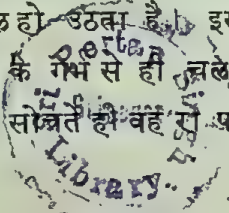 ल हो उठता है। इस
के गर्भ से ही चले
सोचते ही वह रो प
Library.